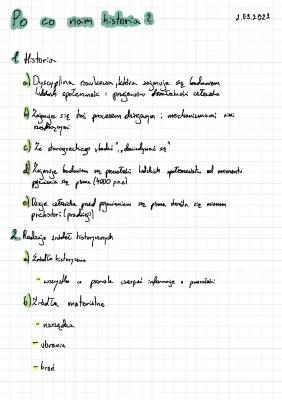 Po co nam historia? 2.09.2021
1. Historia
a) Dyscyplina naukowa, która zajmuje się badaniem
ludzkich społeczności i przejawów działalności człowieka
b) Zajmuje się też procesem dziejowym i mechanizmami nim
rządzącymi
c) Ze starogreckiego "badać", "dowiadywać się"
d) Zajmuje badaniem się przeszłości ludzkich społeczeństw od momentu
pojawienia się pisma (4000 p.n.e)
e) Dzieje człowieka przed pojawieniem się pisma określa się mianem
prehistorii (pradziejów)
2. Rodzaje źródeł historycznych
a) Źródło historyczne
- wszystko z pomocą czerpać informacje o przeszłości
b) Źródła materialne
- narzędzia
- ubrania
- broń